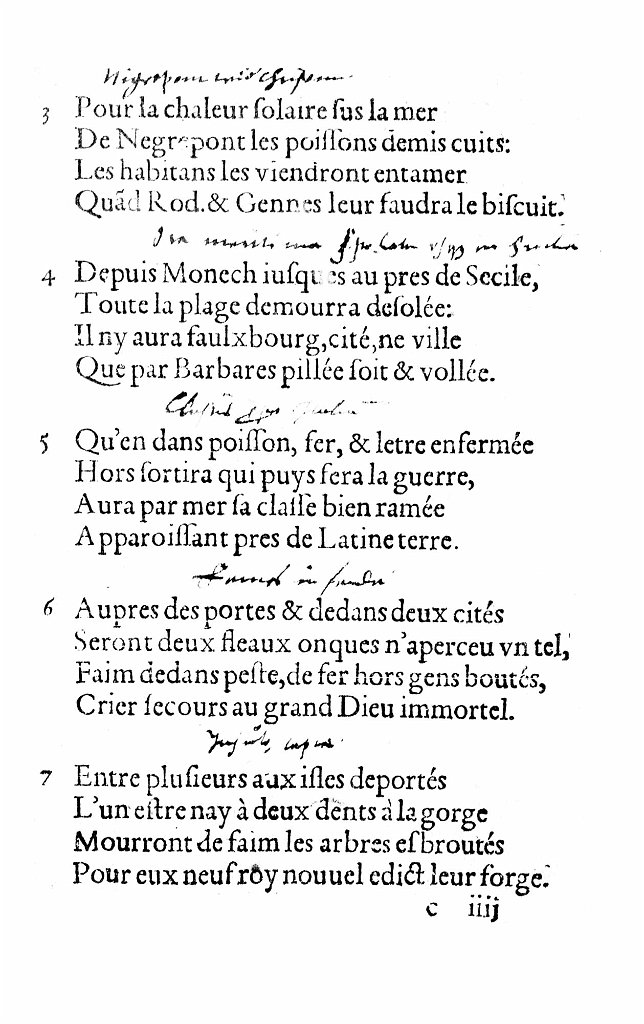 3 Pour la chaleur ſolaire ſus la mer
De Negrepont les poiſſons demis cuits:
Les habitans les viendront entamer
Quãd Rod. & Gennes leur faudra le biſcuit.
4 Depuis Monech iuſques au pres de Secile,
Toute la plage demourra deſolée:
Il ny aura faulxbourg, cité, ne ville
Que par Barbares pillée ſoit & vollée.
5 Qu'en dans poiſſon, fer, & letre enfermée
Hors ſortira qui puys fera la guerre,
Aura par mer ſa claſſe bien ramée
Apparoiſſant pres de Latine terre.
6 Aupres des portes & dedans deux cités
Seront deux fleaux onques n'aperceu vn tel,
Faim dedans peſte, de fer hors gens boutés,
Crier ſecours au grand Dieu immortel.
7 Entre pluſieurs aux iſles deportés
L'un eſtre nay à deux dents à la gorge
Mourront de faim les arbres eſbroutés
Pour eux neuf roy nouuel edict leur forge.
c iiij